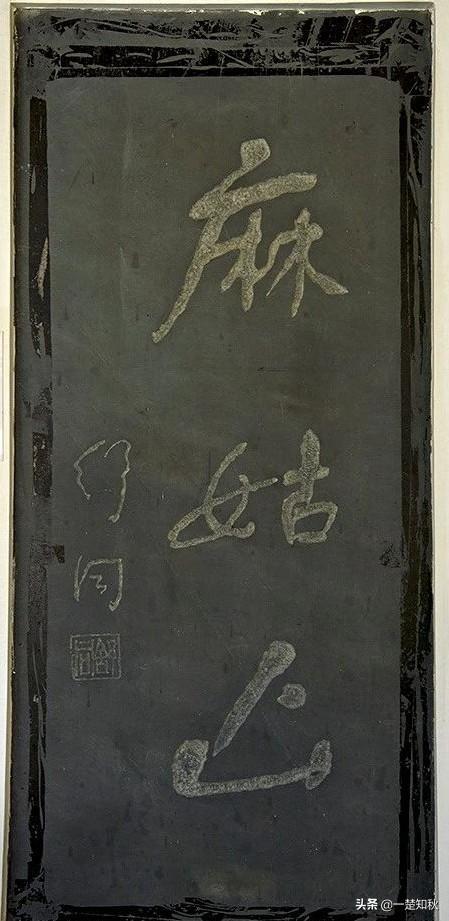 麻姑山
舒同
头条 @一楚知秋